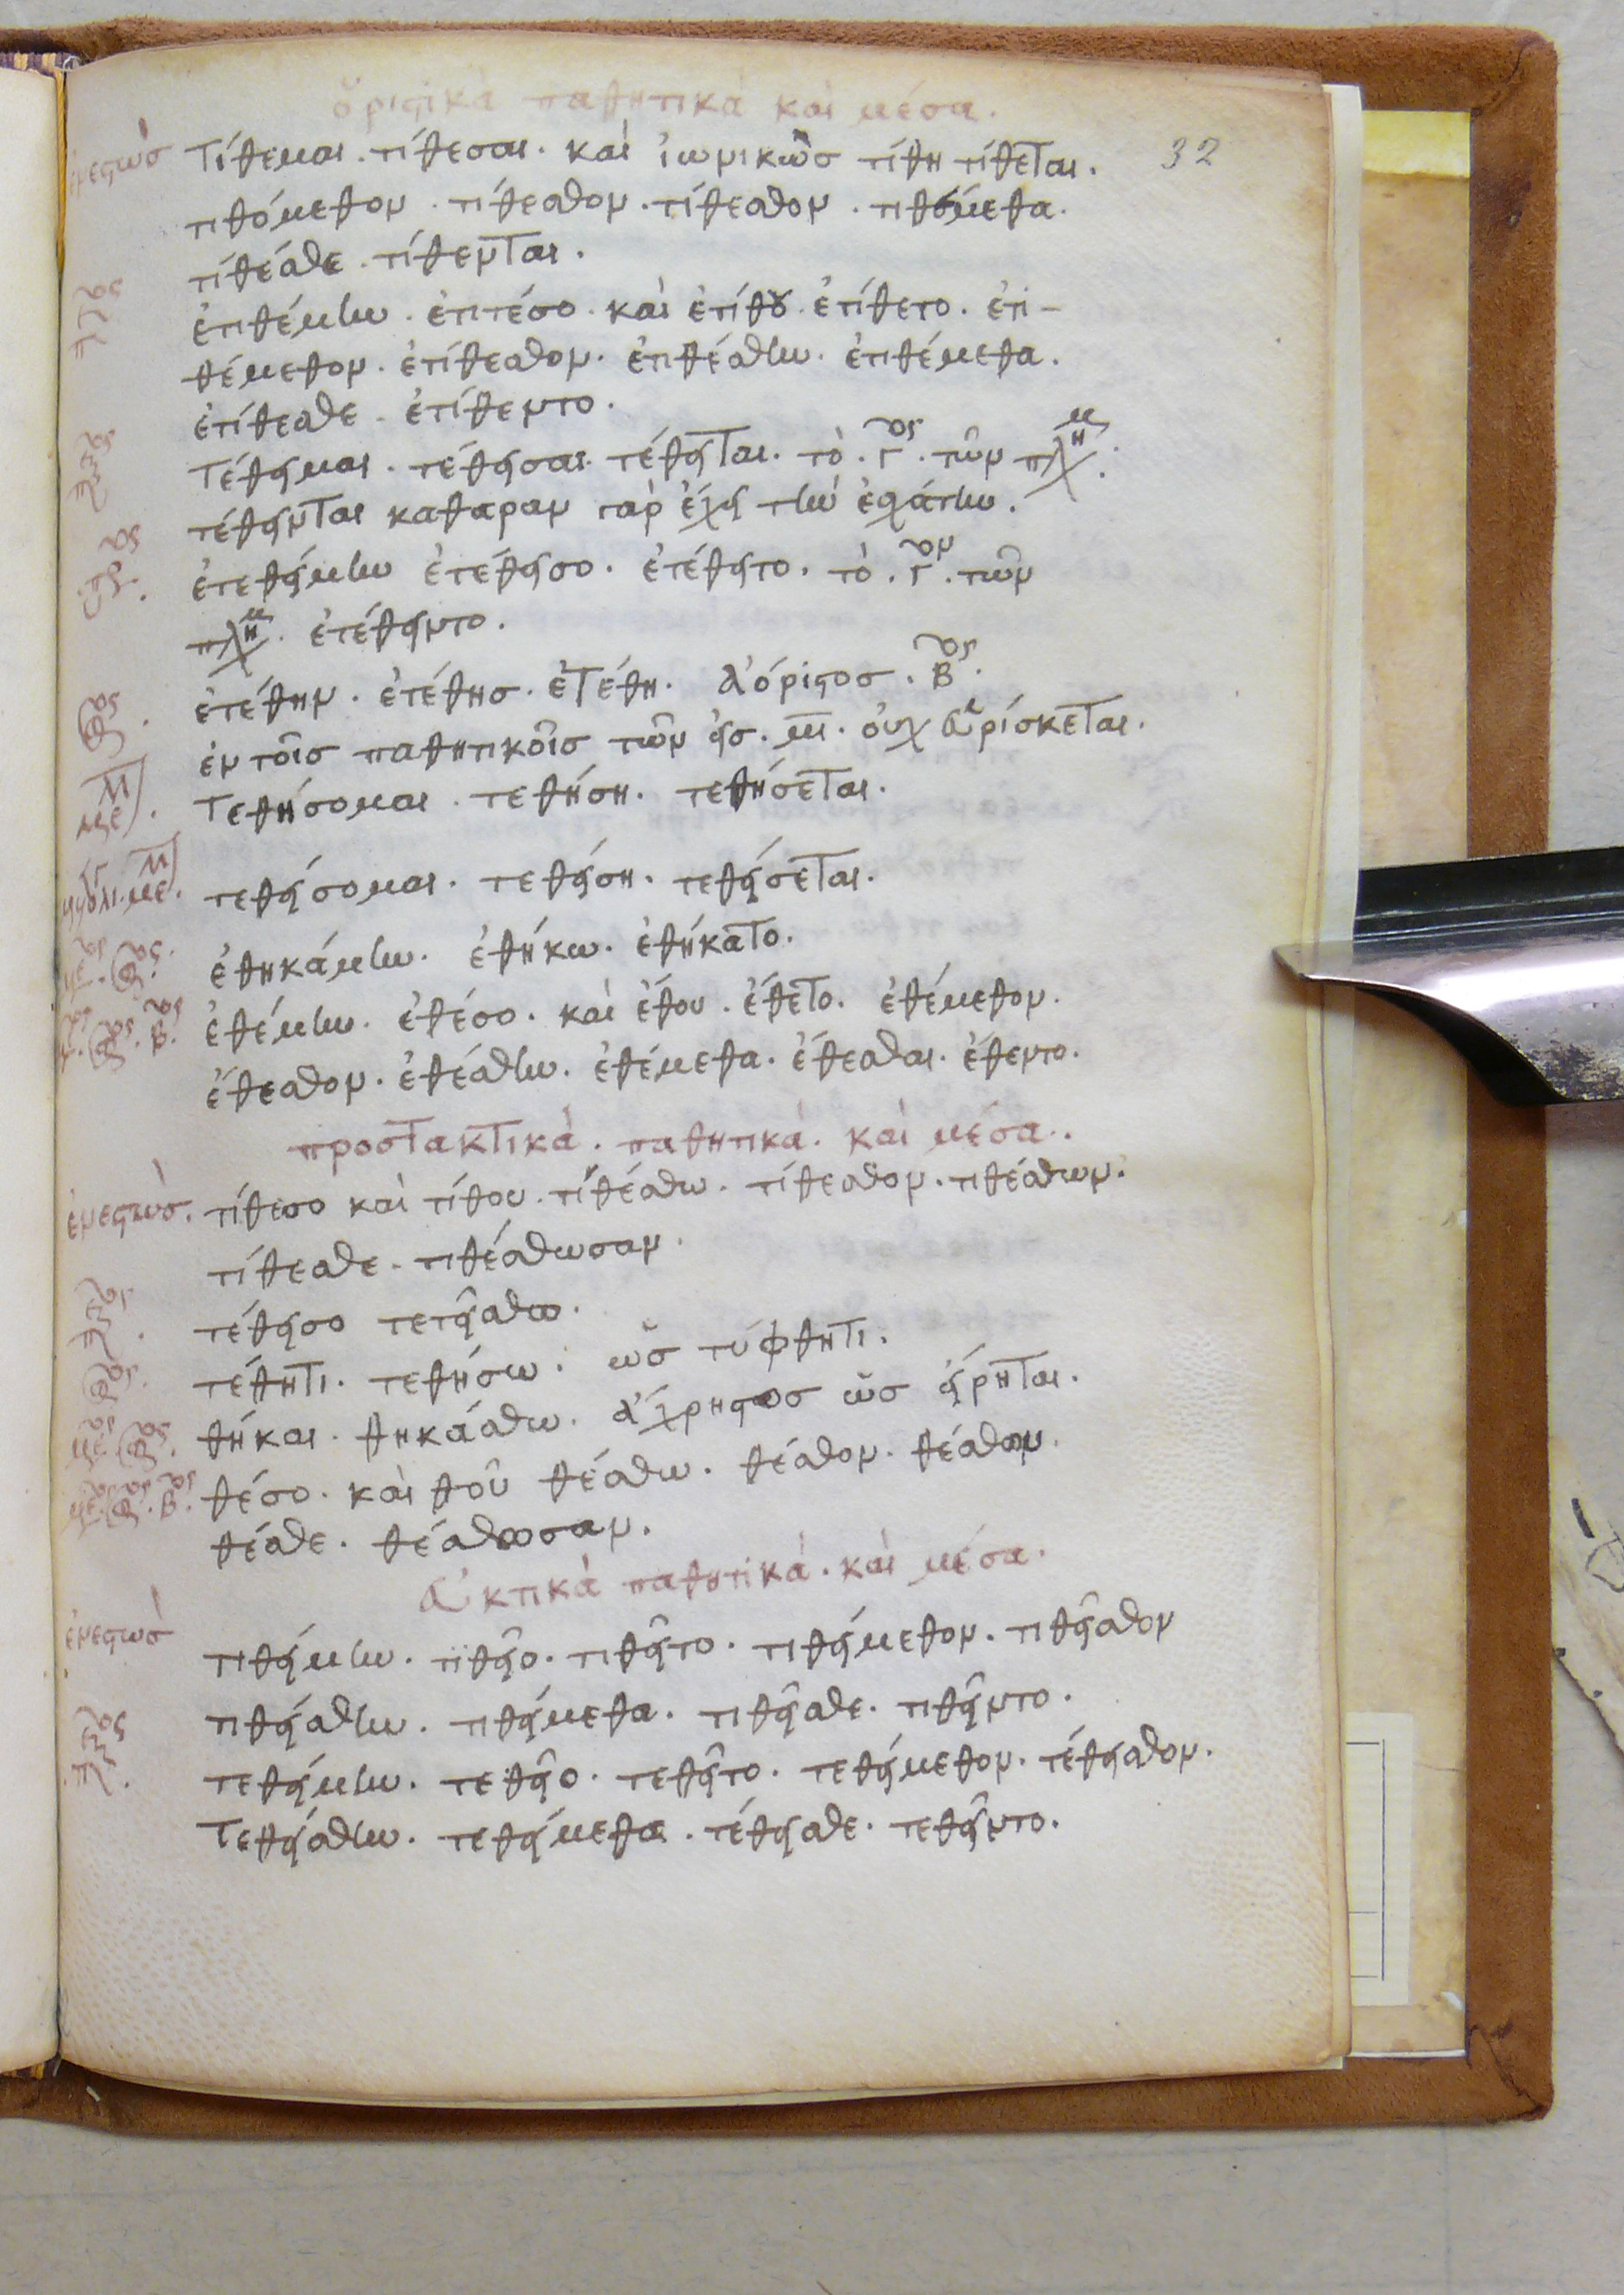 ὁριστικὰ παθητικὰ καὶ μέσα.
32
ἐνεστὼς τίθεμαι. τίθεσαι. καὶ ἰωνικῶς τίθη τίθεται.
τιθόμεθον. τίθεσθον. τίθεσθον. τιθόμεθα.
τίθέσθε. τίθενται.
ἐτιθέμην. ἐτιτέσο. καὶ ἐτίθου. ἐτίθετο. ἐτι-
θέμεθον. ἐτίθεσθον. ἐτιθέσθην. ἐτιθέμεθα.
ἐτίθεσθε. ἐτίθεντο.
τέθειμαι. τέθεισαι. τέθειται. τὸ. γ ος. τῶν πλη
τέθεινται καθαρὰν γὰρ ἔχει τὴν ἐσχάτην.
ἐτεθείμην ἐτέθεισο. ἐτέθειτο. τὸ. γ ον. τῶν
πλη. ἐτέθειντο.
ἐτέθην. ἐτέθης. ἐτέθη. ἀόριστος. β ος.
ἐν τοῖς παθητικοῖς τῶν εἰς. μι. οὐχ εὑρίσκεται.
τεθήσομαι. τεθήση. τεθήσεται.
τεθείσομαι. τεθείση. τεθείσεται.
ἐθηκάμην. ἐθήκω. ἐθήκατο.
ἐθέμην. ἐθέσο. καὶ ἔθου. ἔθετο. ἐθέμεθον.
ἔθεσθον. ἐθέσθην. ἐθέμεθα. ἔθεσθαι. ἔθεντο.
προστακτικὰ. παθητικὰ. καὶ μέσα.
ἐνεστὼς. τίθεσο καὶ τίθου. τιθέσθω. τίθεσθον. τιθέσθων.
τίθεσθε. τιθέσθωσαν.
τέθεισο τετεῖσθω.
τέθητι. τεθήσω. ὡς τύφθητι.
θήκαι. θηκάσθω. ἄχρηστος ὡς εἴρηται.
θέσο. καὶ θοῦ θέσθω. θέσθον. θέσθων.
θέσθε. θέσθωσαν.
εὐκτικὰ παθητικὰ. καὶ μέσα.
ἐνεστὼς τιθείμην. τιθεῖο. τιθεῖτο. τιθείμεθον. τιθεῖσθον
τιθείσθην. τιθείμεθα. τιθεῖσθε. τιθεῖντο.
τεθείμην. τεθεῖο. τεθεῖτο. τεθείμεθον. τέθεισθον.
τεθείσθην. τεθείμεθα. τέθεισθε. τεθεῖντο.